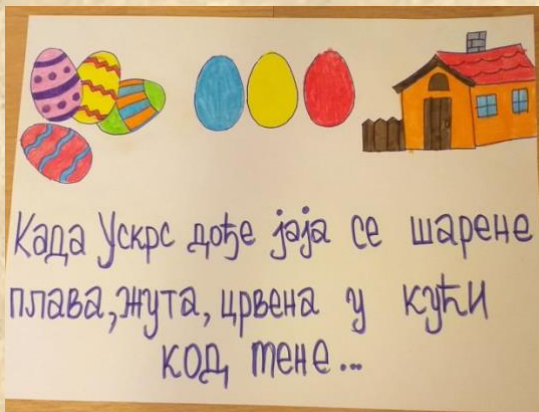 Када Ускрс дође јаја се шарене
плава, жута, црвена у кући
код мене...